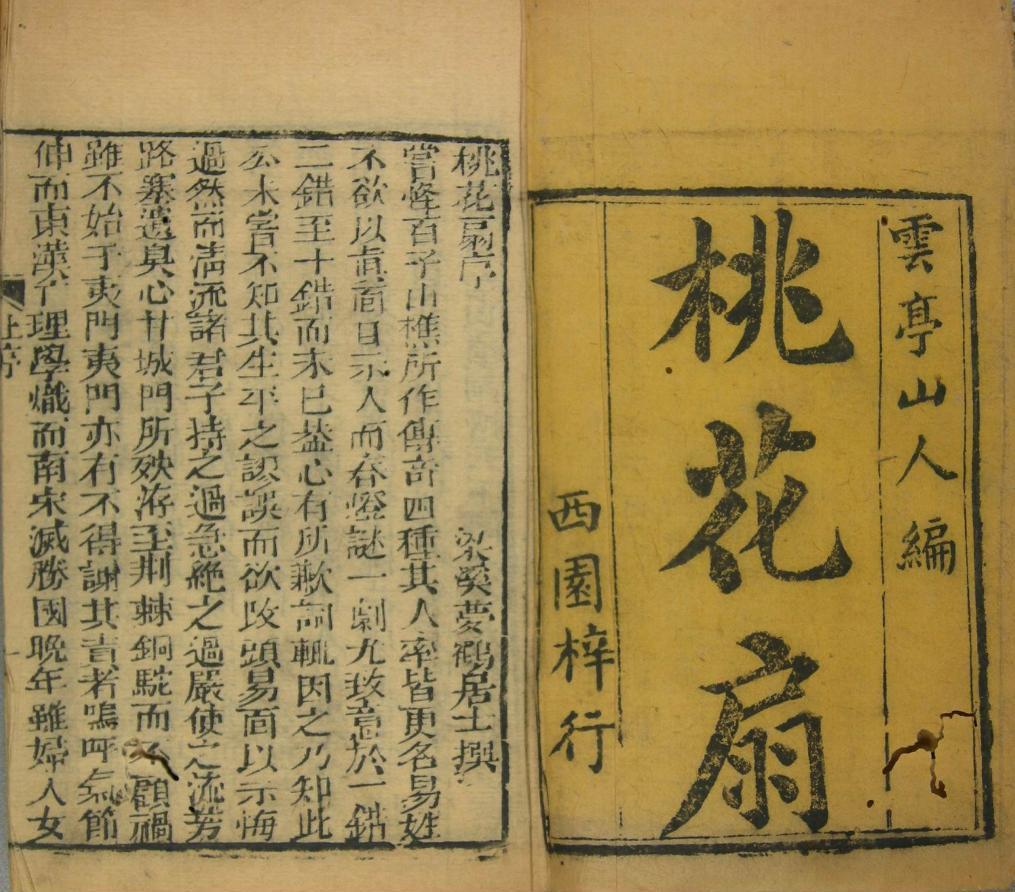 雲亭山人編
桃花扇
西園梓行
桃花扇序
梁溪夢鶴居士撰
嘗怪百子山樵所作傳奇四種其人率皆更名易姓
不欲以真面目示人而春燈謎一劇尤致意於一錯
二錯至十錯而未已葢心有所歉詞輒因之乃知此
公未嘗不知其生平之謬誤而欲改頭易面以示悔
過然而清流諸君子持之過急絶之過嚴使之流芳
路塞遺臭心甘城門所殃洊至荆棘銅駝而不顧禍
雖不始于夷門夷門亦有不得謝其責者嗚呼氣節
伸而東漢亡理學熾而南宋滅勝國晚年雖婦人女
上序
一